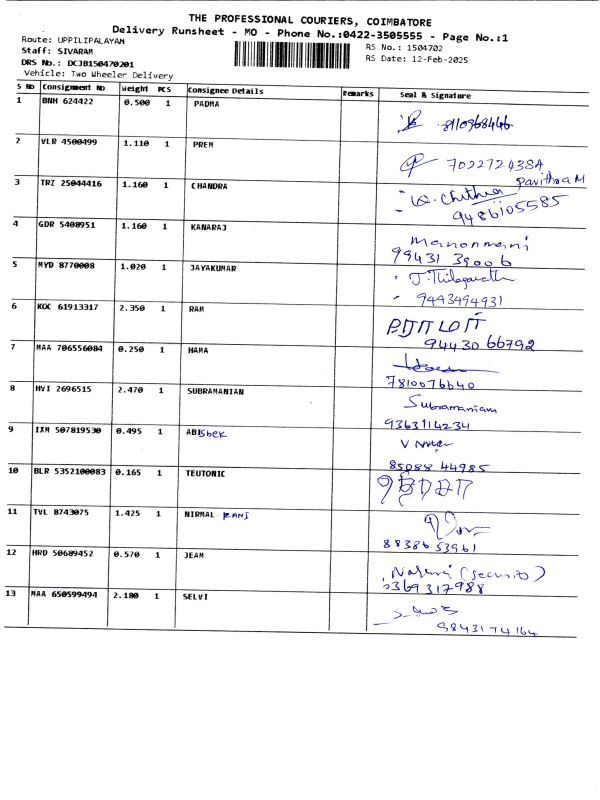 THE PROFESSIONAL COURIERS, COIMBATORE
Delivery Runsheet - MO - Phone No.:0422-3505555 - Page No.:1
Route: UPPILIPALAYAM
RS No.: 1504702
Staff: SIVARAM
RS Date: 12-Feb-2025
DRS No.: DCJB150470201
Vehicle: Two Wheeler Delivery
S No Consignment No Weight PCS Consignee Details Remarks Seal & Signature
1 BNM 624422 0.500 1 PADMA
8110968446
2 VLR 4500499 1.110 1 PREM
7022724384
Pavithra M
3 TRZ 25044416 1.160 1 CHANDRA
Chithra
9486105585
4 GDR 5408951 1.160 1 KANARAJ
Manonmani
99431 39006
5 MYD 8770008 1.020 1 JAYAKUMAR
9443494931
6 KOC 61913317 2.350 1 RAM
94430 66792
7 MAA 706556084 0.250 1 HAMA
7810076640
8 HVI 2696515 2.470 1 SUBRAMANIAN
Subramaniam
9363114234
9 IXM 507819530 0.495 1 ABIShek
85088 44985
10 BLR 5352100083 0.165 1 TEUTONIC
11 TVL 8743075 1.425 1 NIRMAL RANI
88386 53961
12 HRD 50689452 0.570 1 JEAM
(Security)
9369317988
13 MAA 650599494 2.180 1 SELVI
9843174164